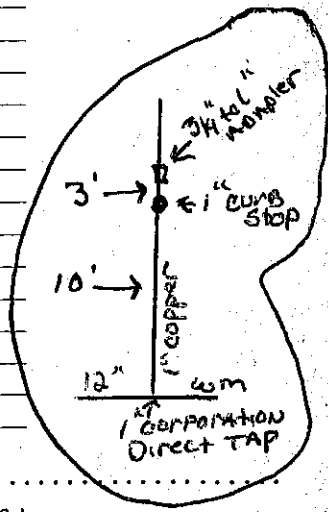 3/4" to 1"
3'
1" CURB
STOP
10'
1" COPPER
12" wm
1" CORPORATION
Direct TAP